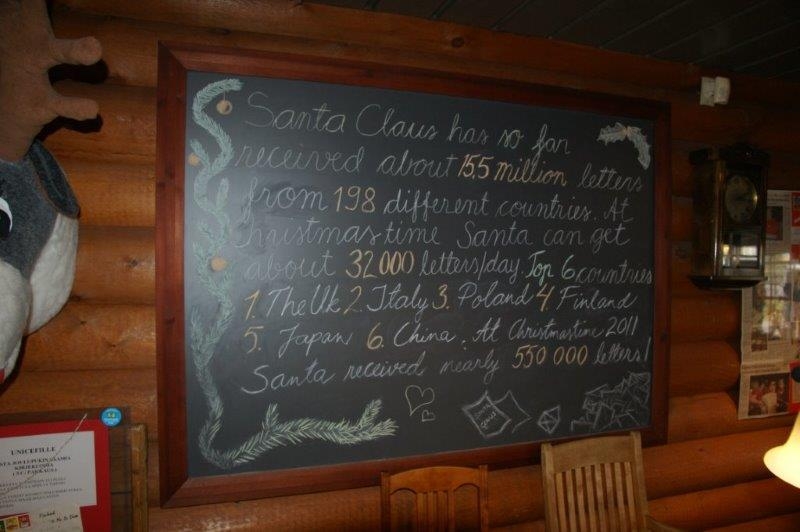 Santa Claus has so far
received about 15.5 million letters
from 198 different countries. At
Christmastime Santa can get
about 32 000 letters/day. Top 6 countries
1. The Uk 2. Italy 3. Poland 4 Finland
5. Japan 6. China. At Christmastime 2011
Santa received nearly 550 000 letters!
UNICEFILLE